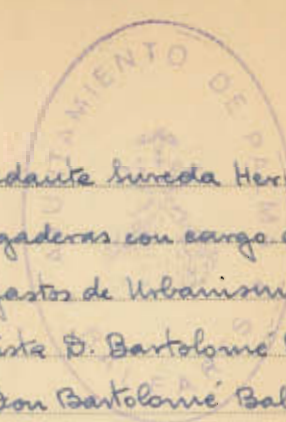 AYUNTAMIENTO DE PALMA
BALEARES
dante Sureda Her
gaderas con cargo a
gastos de Urbanism
ista D. Bartolomé
Don Bartolomé Bal